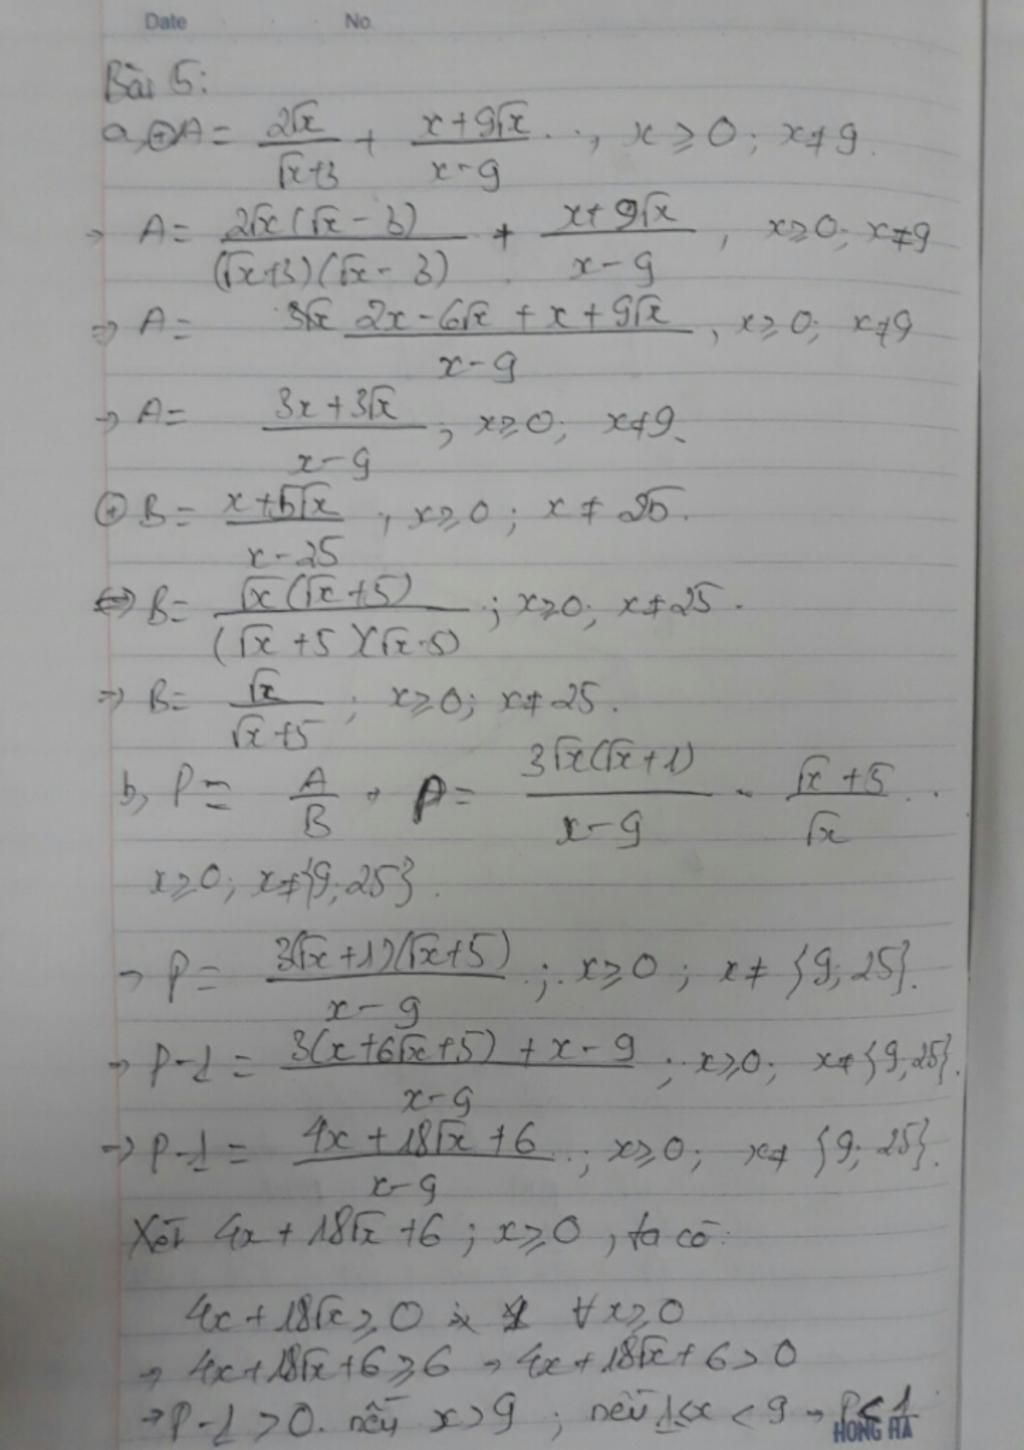 Date No.
Bài 5:
a, ⊕ A = 2√x/(√x+3) + (x+9√x)/(x-9) ..., x ≥ 0; x ≠ 9.
→ A = 2√x(√x-3)/((√x+3)(√x-3)) + (x+9√x)/(x-9), x ≥ 0; x ≠ 9
=> A = (2x-6√x+x+9√x)/(x-9), x ≥ 0; x ≠ 9
→ A = (3x+3√x)/(x-9); x ≥ 0; x ≠ 9.
⊕ B = (x+5√x)/(x-25), x ≥ 0; x ≠ 25.
<=> B = √x(√x+5)/((√x+5)(√x-5)); x ≥ 0; x ≠ 25.
=> B = √x/(√x+5); x ≥ 0; x ≠ 25.
b, P = A/B → P = 3√x(√x+1)/(x-9) · (√x+5)/√x ..
x ≥ 0; x ≠ {9; 25}.
→ P = 3(√x+1)(√x+5)/(x-9); x ≥ 0; x ≠ {9; 25}.
→ P-1 = (3(x+6√x+5)+x-9)/(x-9); x ≥ 0; x ≠ {9; 25}.
→ P-1 = (4x+18√x+6)/(x-9); x ≥ 0; x ≠ {9; 25}.
Xét 4x+18√x+6; x ≥ 0, ta có:
4x+18√x ≥ 0 ∀x ≥ 0
→ 4x+18√x+6 ≥ 6 → 4x+18√x+6 > 0
→ P-1 > 0. nếu x > 9; nếu 1 ≤ x < 9 → P < 1
HONG HA